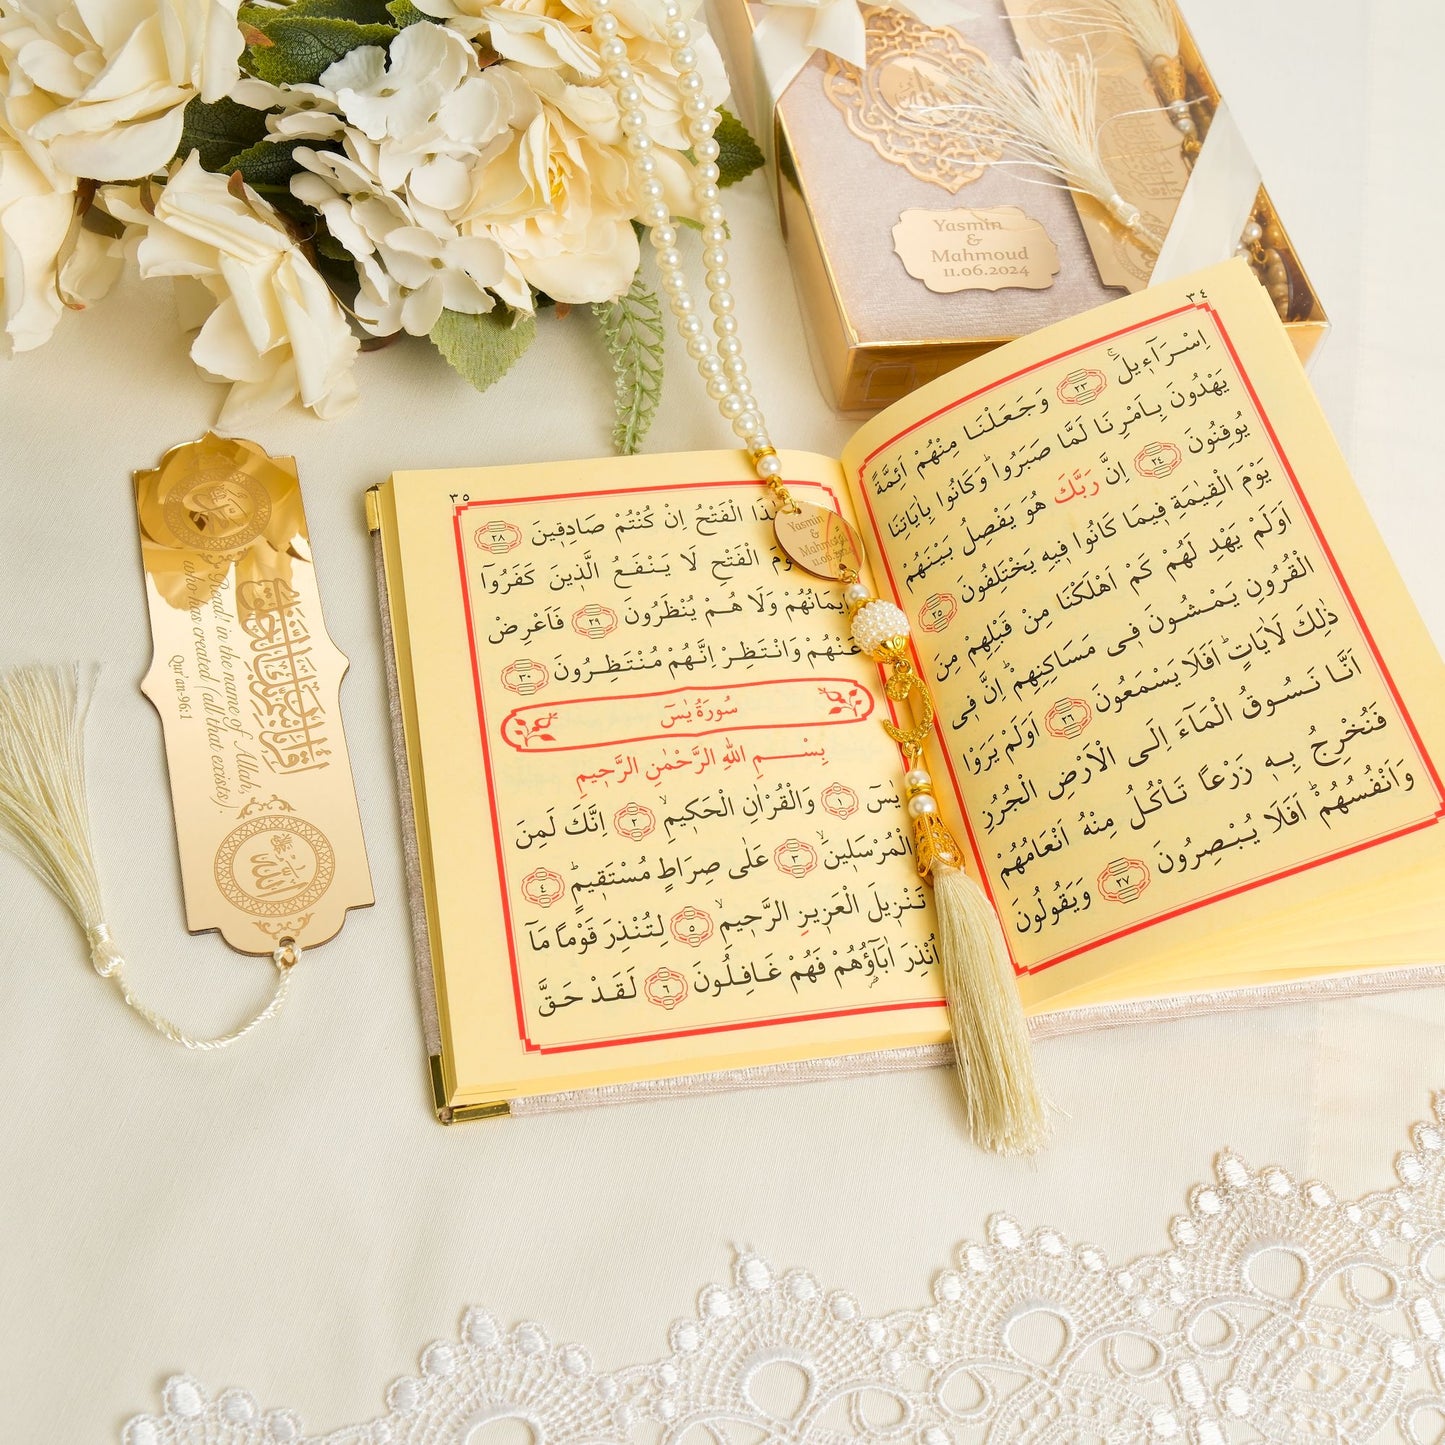 Yasmin
&
Mahmoud
11.06.2024
٣٤
اِسْرَٓاءٖيلَۚ ﴿٢٣﴾ وَجَعَلْنَا مِنْهُمْ اَئِمَّةً
يَهْدُونَ بِاَمْرِنَا لَمَّا صَبَرُواؕ وَكَانُوا بِاٰيَاتِنَا
يُوقِنُونَ ﴿٢٤﴾ اِنَّ رَبَّكَ هُوَ يَفْصِلُ بَيْنَهُمْ
يَوْمَ الْقِيٰمَةِ فٖيمَا كَانُوا فٖيهِ يَخْتَلِفُونَ ﴿٢٥﴾
اَوَلَمْ يَهْدِ لَهُمْ كَمْ اَهْلَكْنَا مِنْ قَبْلِهِمْ مِنَ
الْقُرُونِ يَمْشُونَ فٖى مَسَاكِنِهِمْؕ اِنَّ فٖى
ذٰلِكَ لَاٰيَاتٍؕ اَفَلَا يَسْمَعُونَ ﴿٢٦﴾ اَوَلَمْ يَرَوْا
اَنَّا نَسُوقُ الْمَٓاءَ اِلَى الْاَرْضِ الْجُرُزِ
فَنُخْرِجُ بِهٖ زَرْعًا تَاْكُلُ مِنْهُ اَنْعَامُهُمْ
وَاَنْفُسُهُمْؕ اَفَلَا يُبْصِرُونَ ﴿٢٧﴾ وَيَقُولُونَ
٣٥
الْفَتْحُ اِنْ كُنْتُمْ صَادِقٖينَ ﴿٢٨﴾
الْفَتْحِ لَا يَنْفَعُ الَّذٖينَ كَفَرُٓوا
اٖيمَانُهُمْ وَلَا هُمْ يُنْظَرُونَ ﴿٢٩﴾ فَاَعْرِضْ
عَنْهُمْ وَانْتَظِرْ اِنَّهُمْ مُنْتَظِرُونَ ﴿٣٠﴾
سُورَةُ يٰسٓ
بِسْمِ اللّٰهِ الرَّحْمٰنِ الرَّحٖيمِ
يٰسٓ ﴿١﴾ وَالْقُرْاٰنِ الْحَكٖيمِۙ ﴿٢﴾ اِنَّكَ لَمِنَ
الْمُرْسَلٖينَۙ ﴿٣﴾ عَلٰى صِرَاطٍ مُسْتَقٖيمٍؕ ﴿٤﴾
تَنْزٖيلَ الْعَزٖيزِ الرَّحٖيمِۙ ﴿٥﴾ لِتُنْذِرَ قَوْمًا مَٓا
اُنْذِرَ اٰبَٓاؤُهُمْ فَهُمْ غَافِلُونَ ﴿٦﴾ لَقَدْ حَقَّ
Yasmin
&
Mahmoud
Read! in the name of Allah,
who has created (all that exists).
Qur'an-96:1